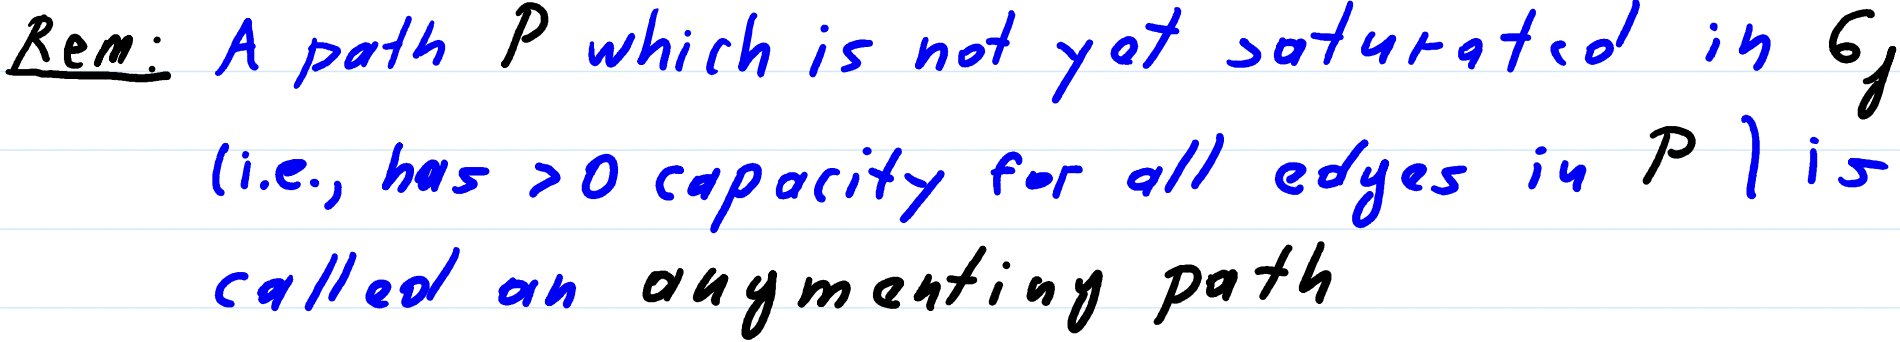 Rem: A path P which is not yet saturated in G_f
(i.e., has >0 capacity for all edges in P) is
called an augmenting path